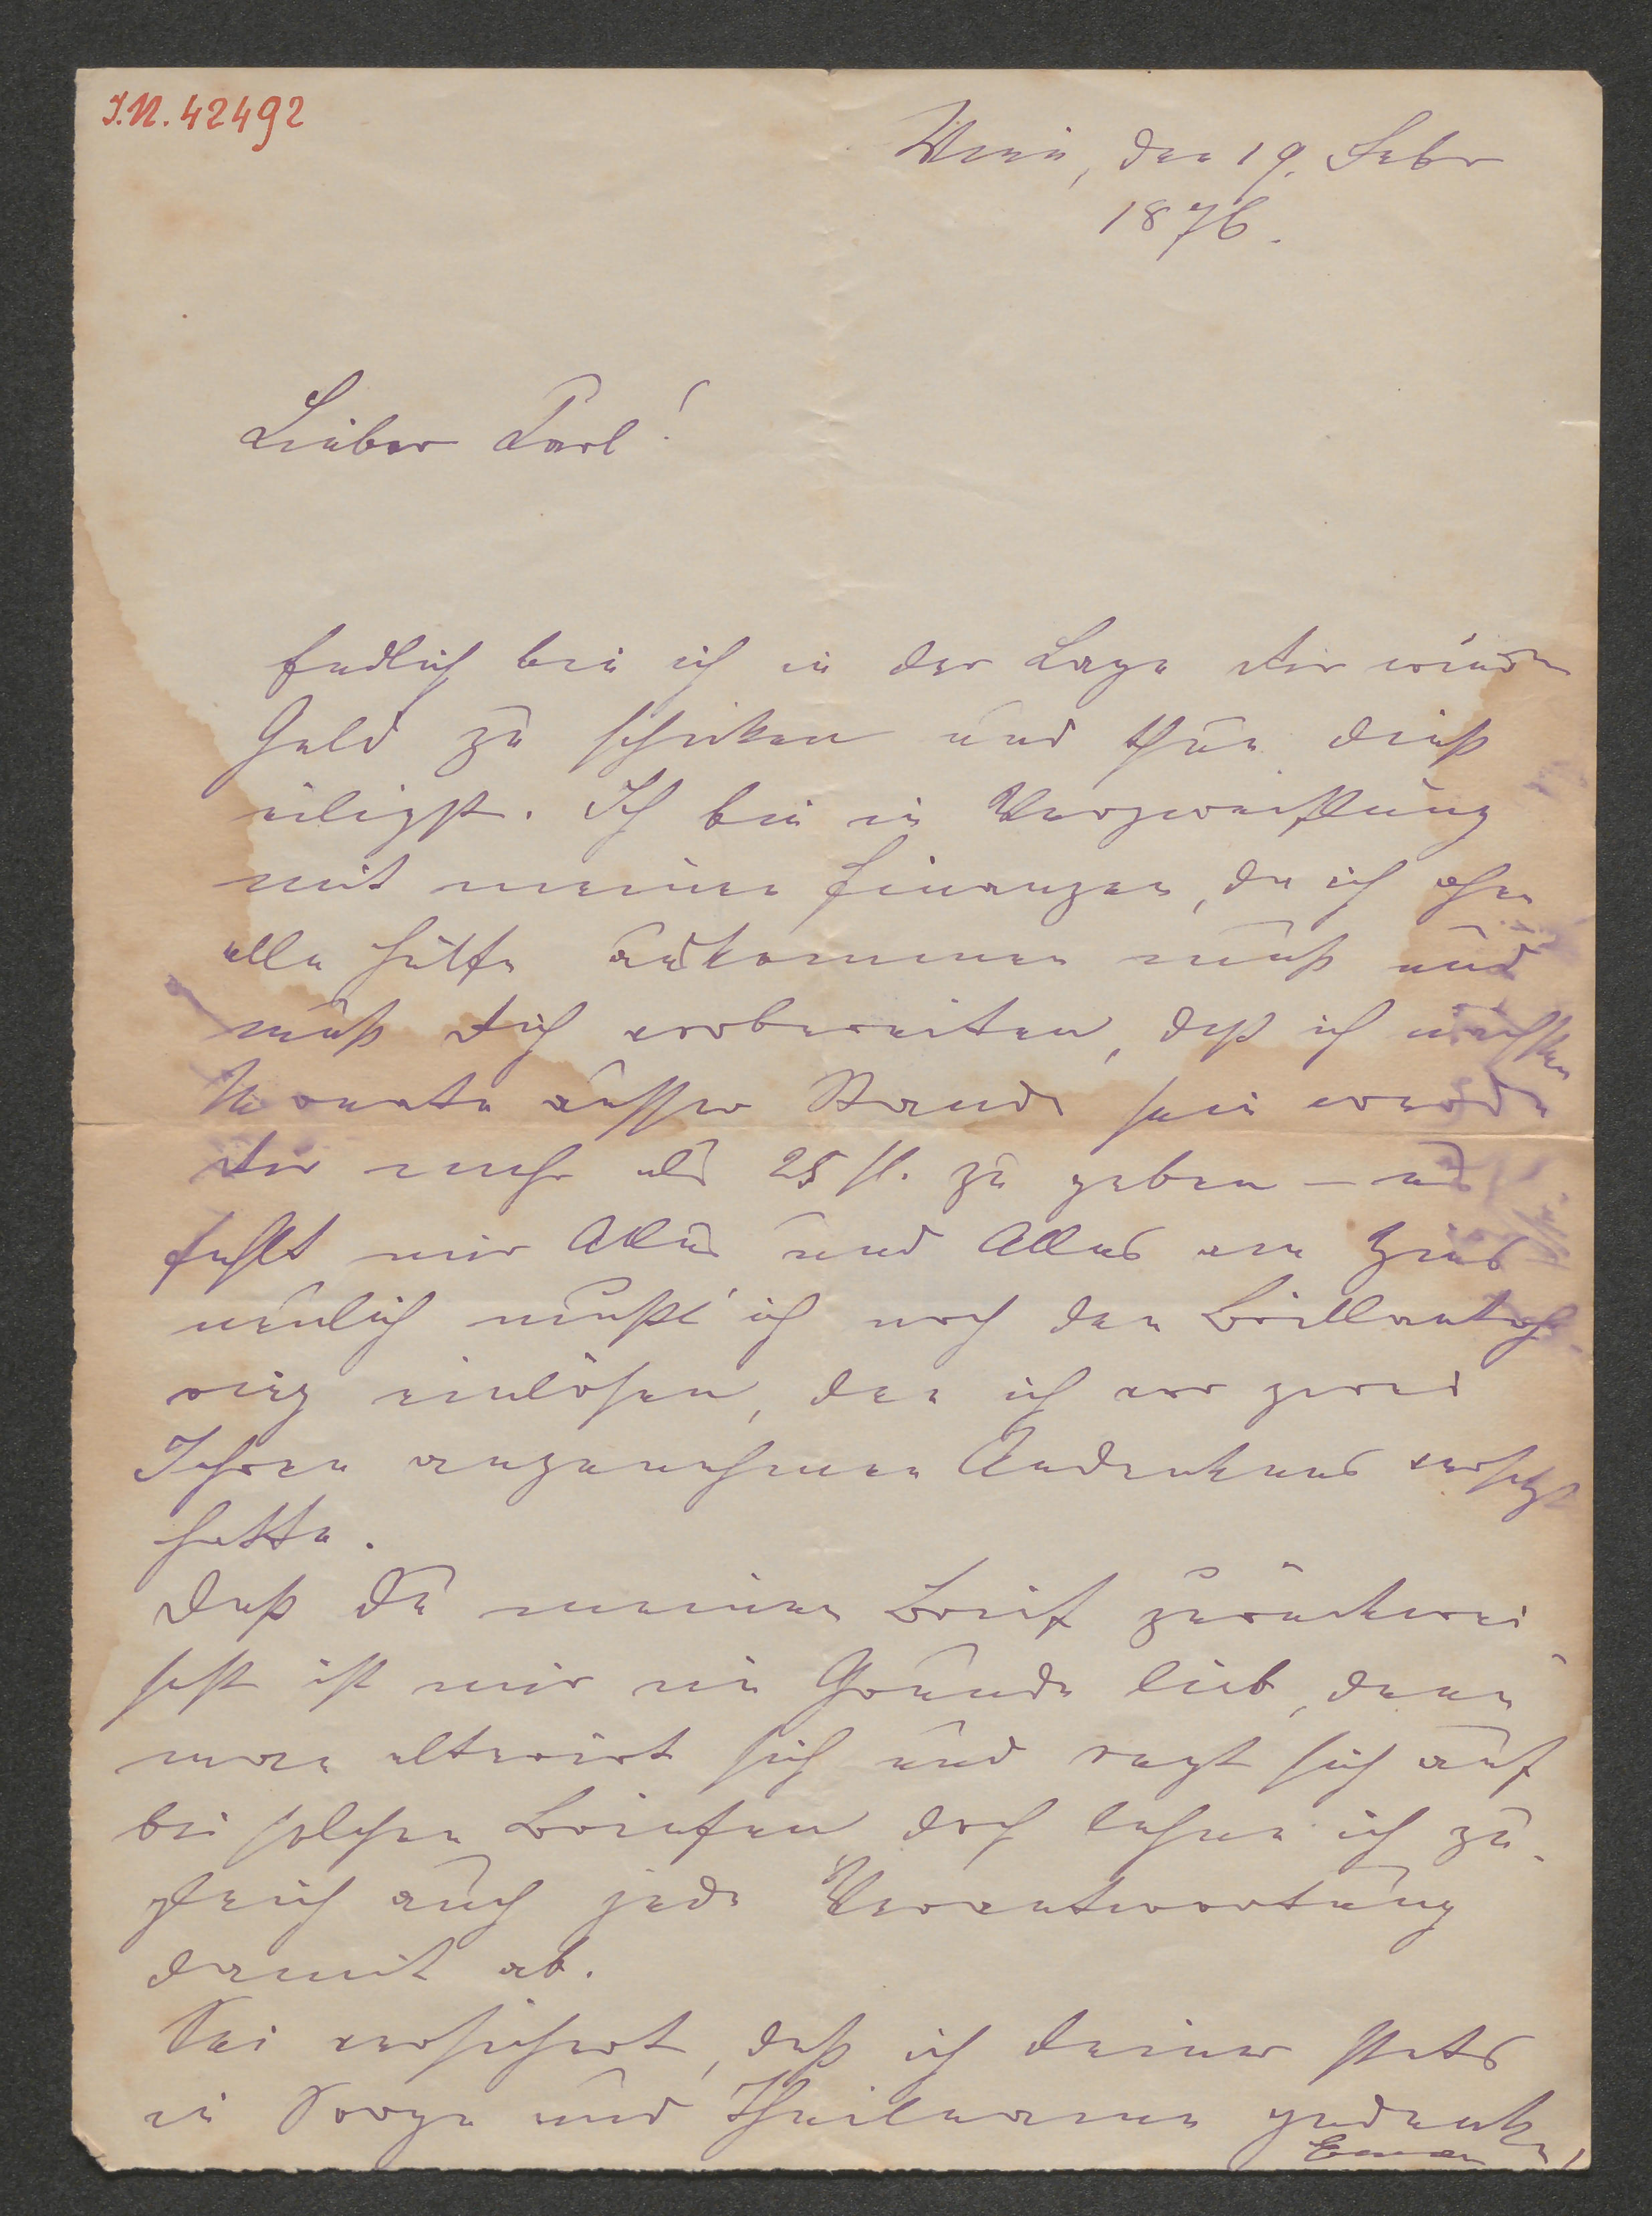 I.N. 42492
Wien, den 19. Febr
1876.
Lieber Carl!
Endlich bin ich in der Lage Dir wieder
Geld zu schicken und thue dieß
eiligst. Ich bin in Verzweiflung
mit meinen Finanzen, da ich ohne
alle Hülfe auskommen muß und
muß Dich vorbereiten, daß ich nächsten
Monate ausser Stande sein werde
Dir mehr als 25 fl. zu geben – es
fehlt mir Alles und Alles am Zins
neulich mußt' ich noch den Brillant
ring einlösen, den ich vor zwei
Jahren angenehmen Andenkens versetzt
hatte.
Daß Du meinen Brief zurückwei
sest ist mir im Grunde lieb, denn
man alterirt sich und regt sich auf
bei solchen Briefen doch lehne ich zu-
gleich auch jede Verantwortung
damit ab.
Sei versichert, daß ich Deiner stets
in Sorge und Theilname gedenke,